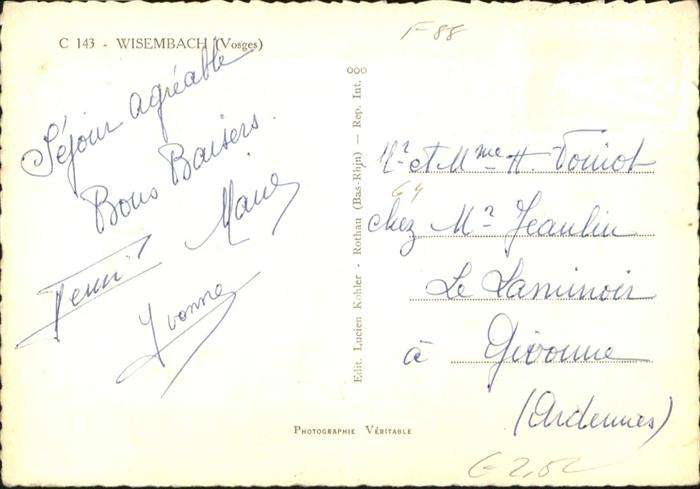 C 143 - WISEMBACH (Vosges)
F-88
Séjour agréable
Bons Baisers.
Marie
Yvonne
Edit. Lucien Kohler - Rothau (Bas-Rhjn) — Rep. Int. 000
Mr et Mme H.
chez Mr Jeanlin
Le Laminoir
à Givonne
(Ardennes)
PHOTOGRAPHIE VÉRITABLE